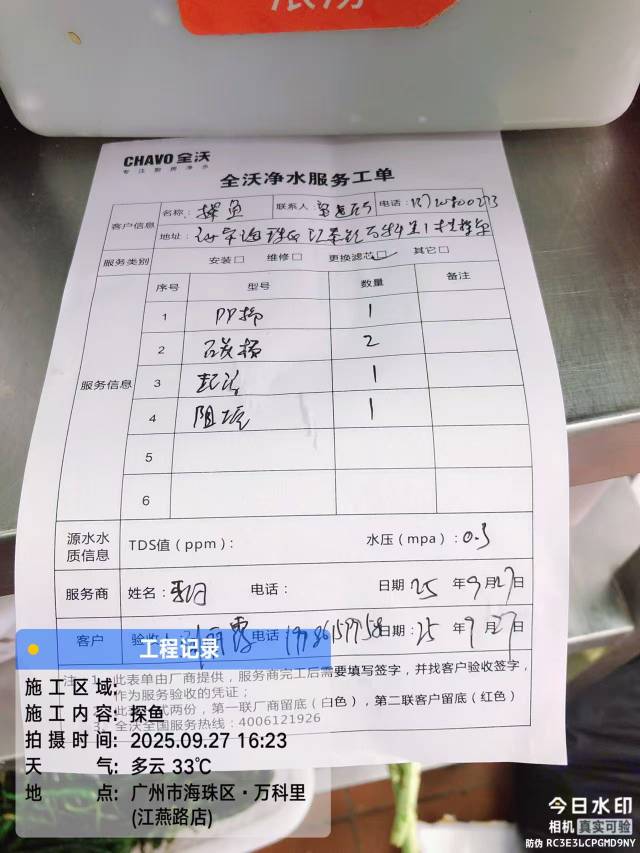 CHAVO 全沃
专注厨房净水
全沃净水服务工单
客户信息
名称：探鱼 联系人 电话：
地址：
服务类别 安装□ 维修□ 更换滤芯□ 其它□
服务信息
序号 型号 数量 备注
1 PP棉 1
2 2
3 1
4 阻垢 1
5
6
源水水质信息 TDS值（ppm）： 水压（mpa）：0.3
服务商 姓名： 电话： 日期 25 年 9 月 27 日
客户 电话：19786159758 日期：25 年 9 月 27 日
1、此表单由厂商提供，服务商完工后需要填写签字，并找客户验收签字，
作为服务验收的凭证；
式两份，第一联厂商留底（白色），第二联客户留底（红色）
3、全沃全国服务热线：4006121926
工程记录
施工区域：
施工内容：探鱼
拍摄时间：2025.09.27 16:23
天气：多云 33℃
地点：广州市海珠区·万科里
(江燕路店)
今日水印
相机 真实可验
防伪 RC3E3LCPGMD9NY